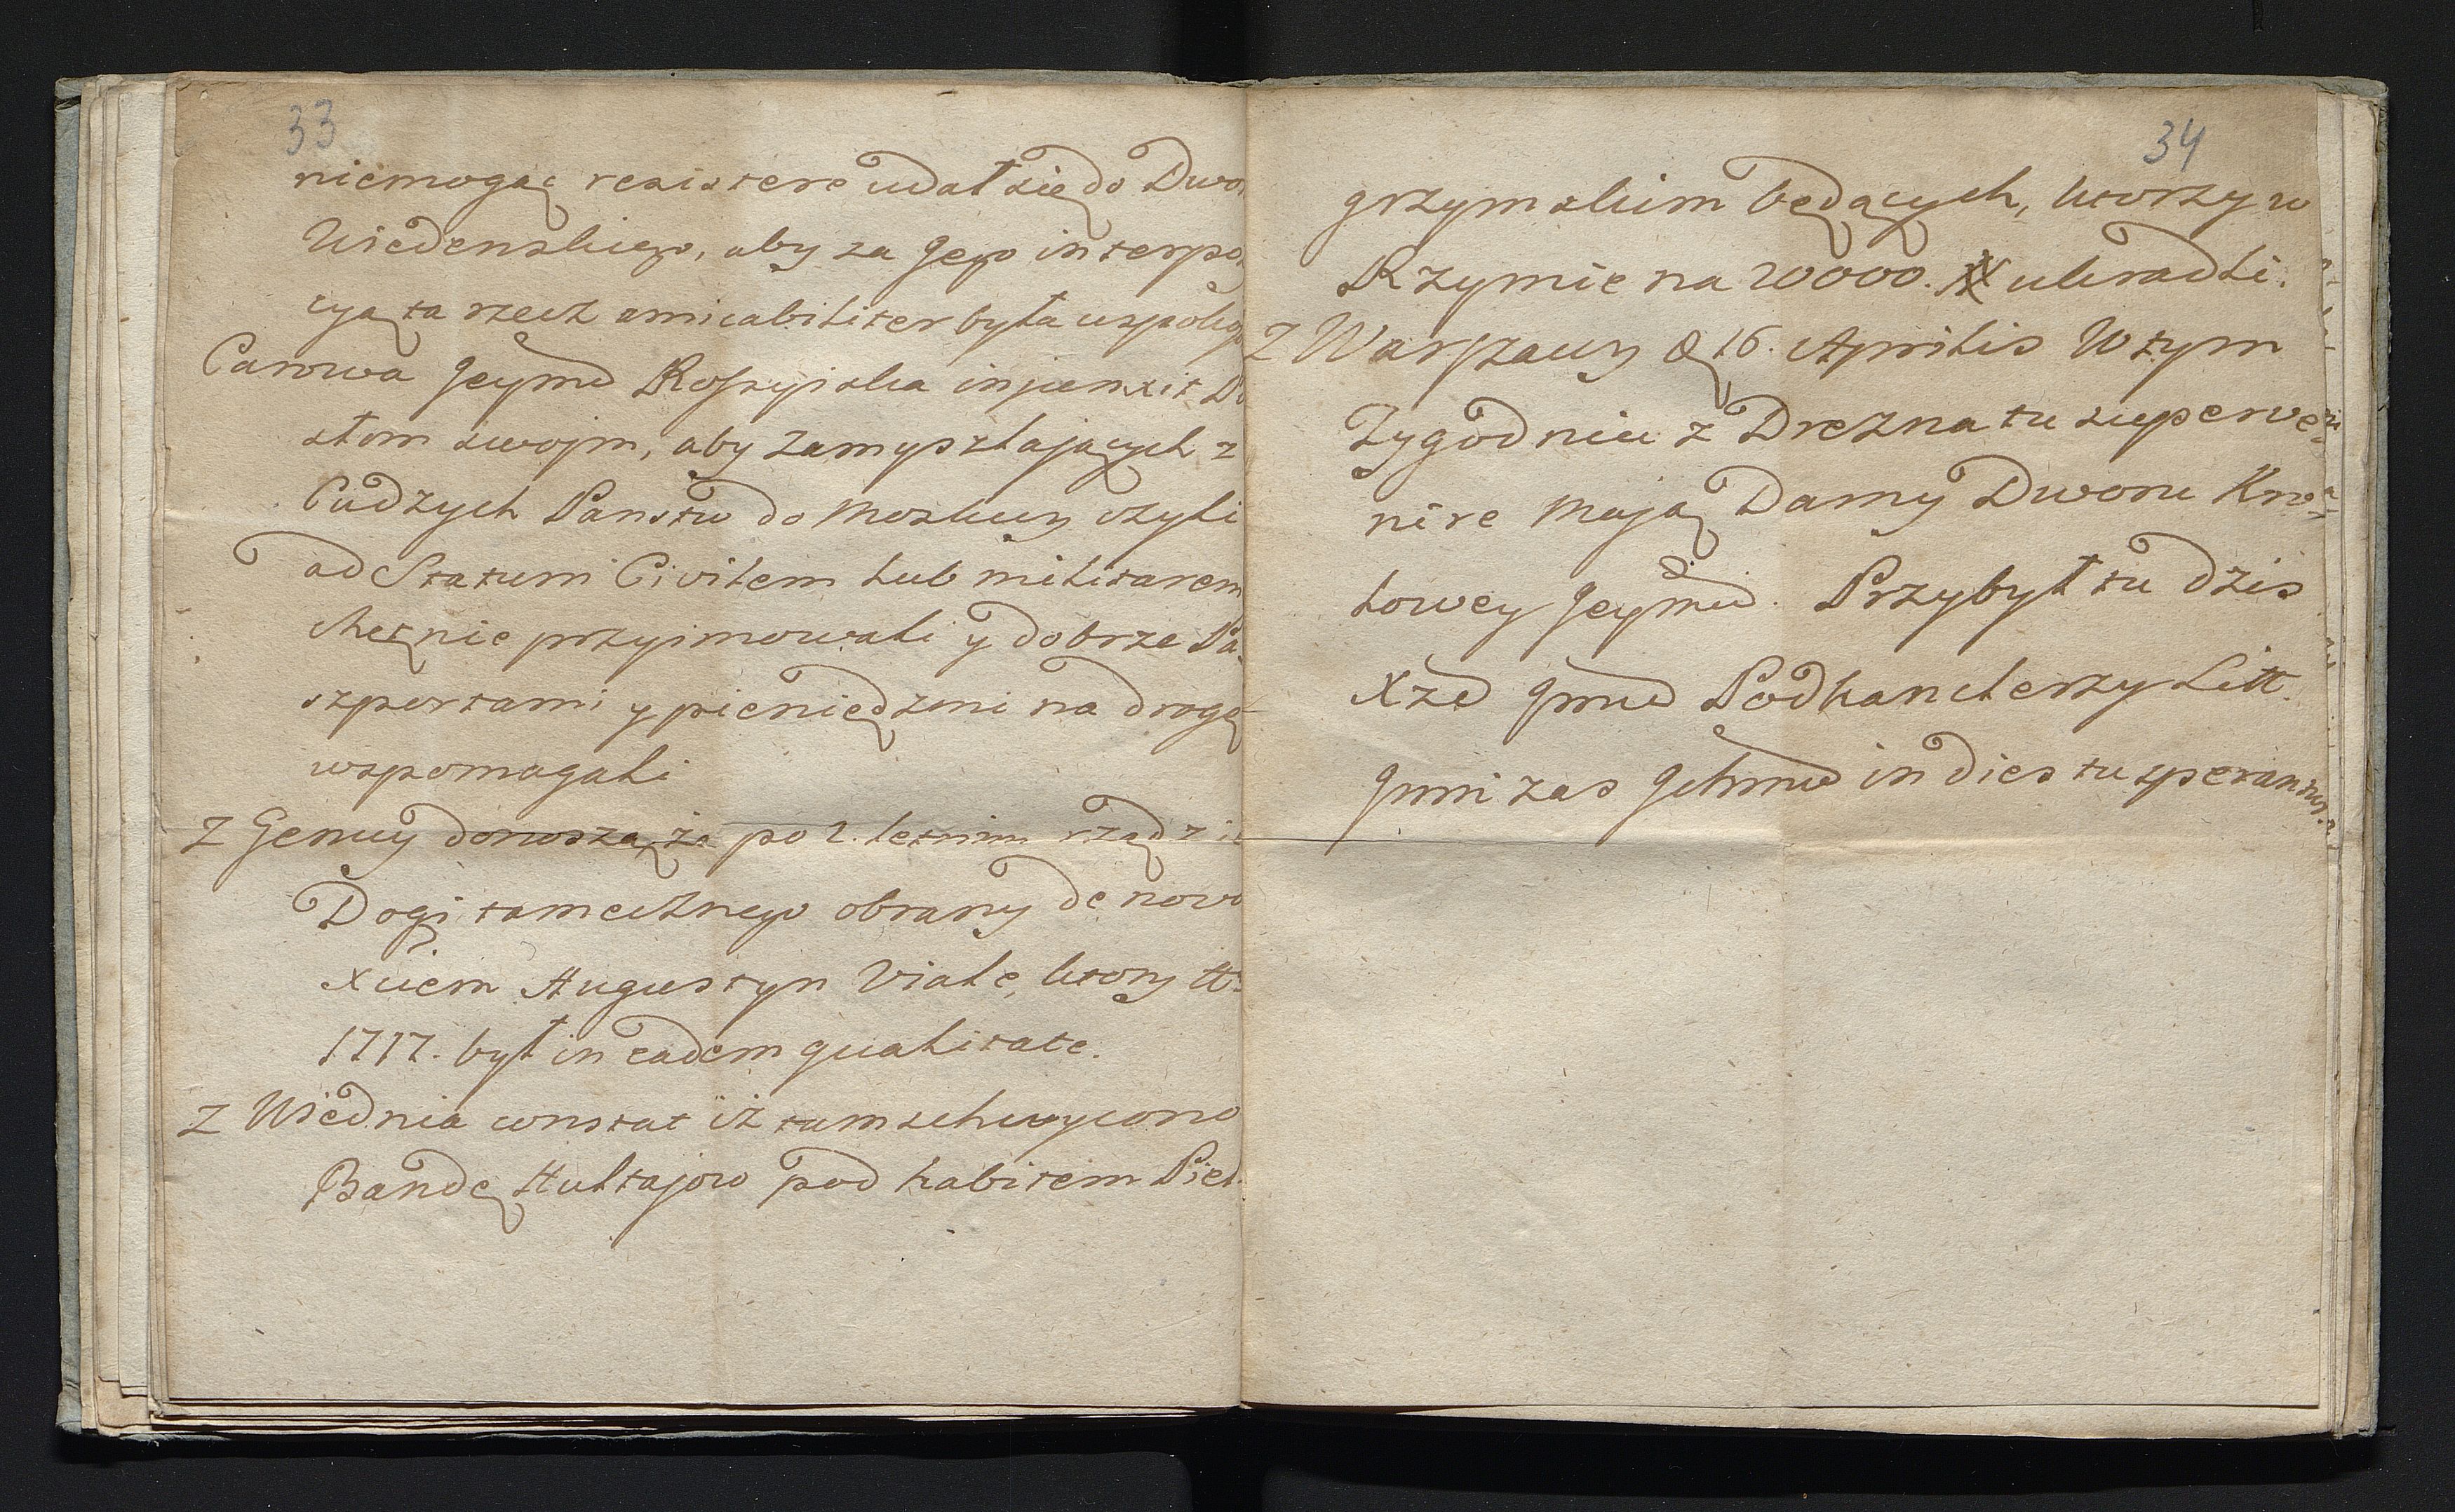 33
niemogąc resistere udał się do Dwo
Wiedenskiego, aby za Jego interpo
cyą ta rzecz amicabiliter była uspoko
Carowa Jeymć Rossyiska injunxit Po
słom swojm, aby zamyszlających z
Cudzych Panstw do Moskwy czyli
ad Statum Civilem lub militarem
chętnie przyimowali y dobrze Pa
szportami y pieniędzmi na drogę
wspomagali
Z Genuy donoszą, że po 2. letnim rządzie
Dogi tamecznego obrany de novo
Xciem Augustyn Viale, ktory Aō
1717. był in eadem qualitate.
Z Wiednia constat iż tam schwycono
Bandę Hultajow pod habitem Piel
34
grzymskim będących, ktorzy w
Rzymie na 20000. # ukradli.
Z Warszawy d 16. Aprilis W tym
Tygodniu z Drezna tu superve-
nire mają Damy Dworu Kro-
lowey Jeymći. Przybył tu dzis
Xże Jmć Podkanclerzy Litt.
Jnni zas Ichmć in dies tu sperantur.